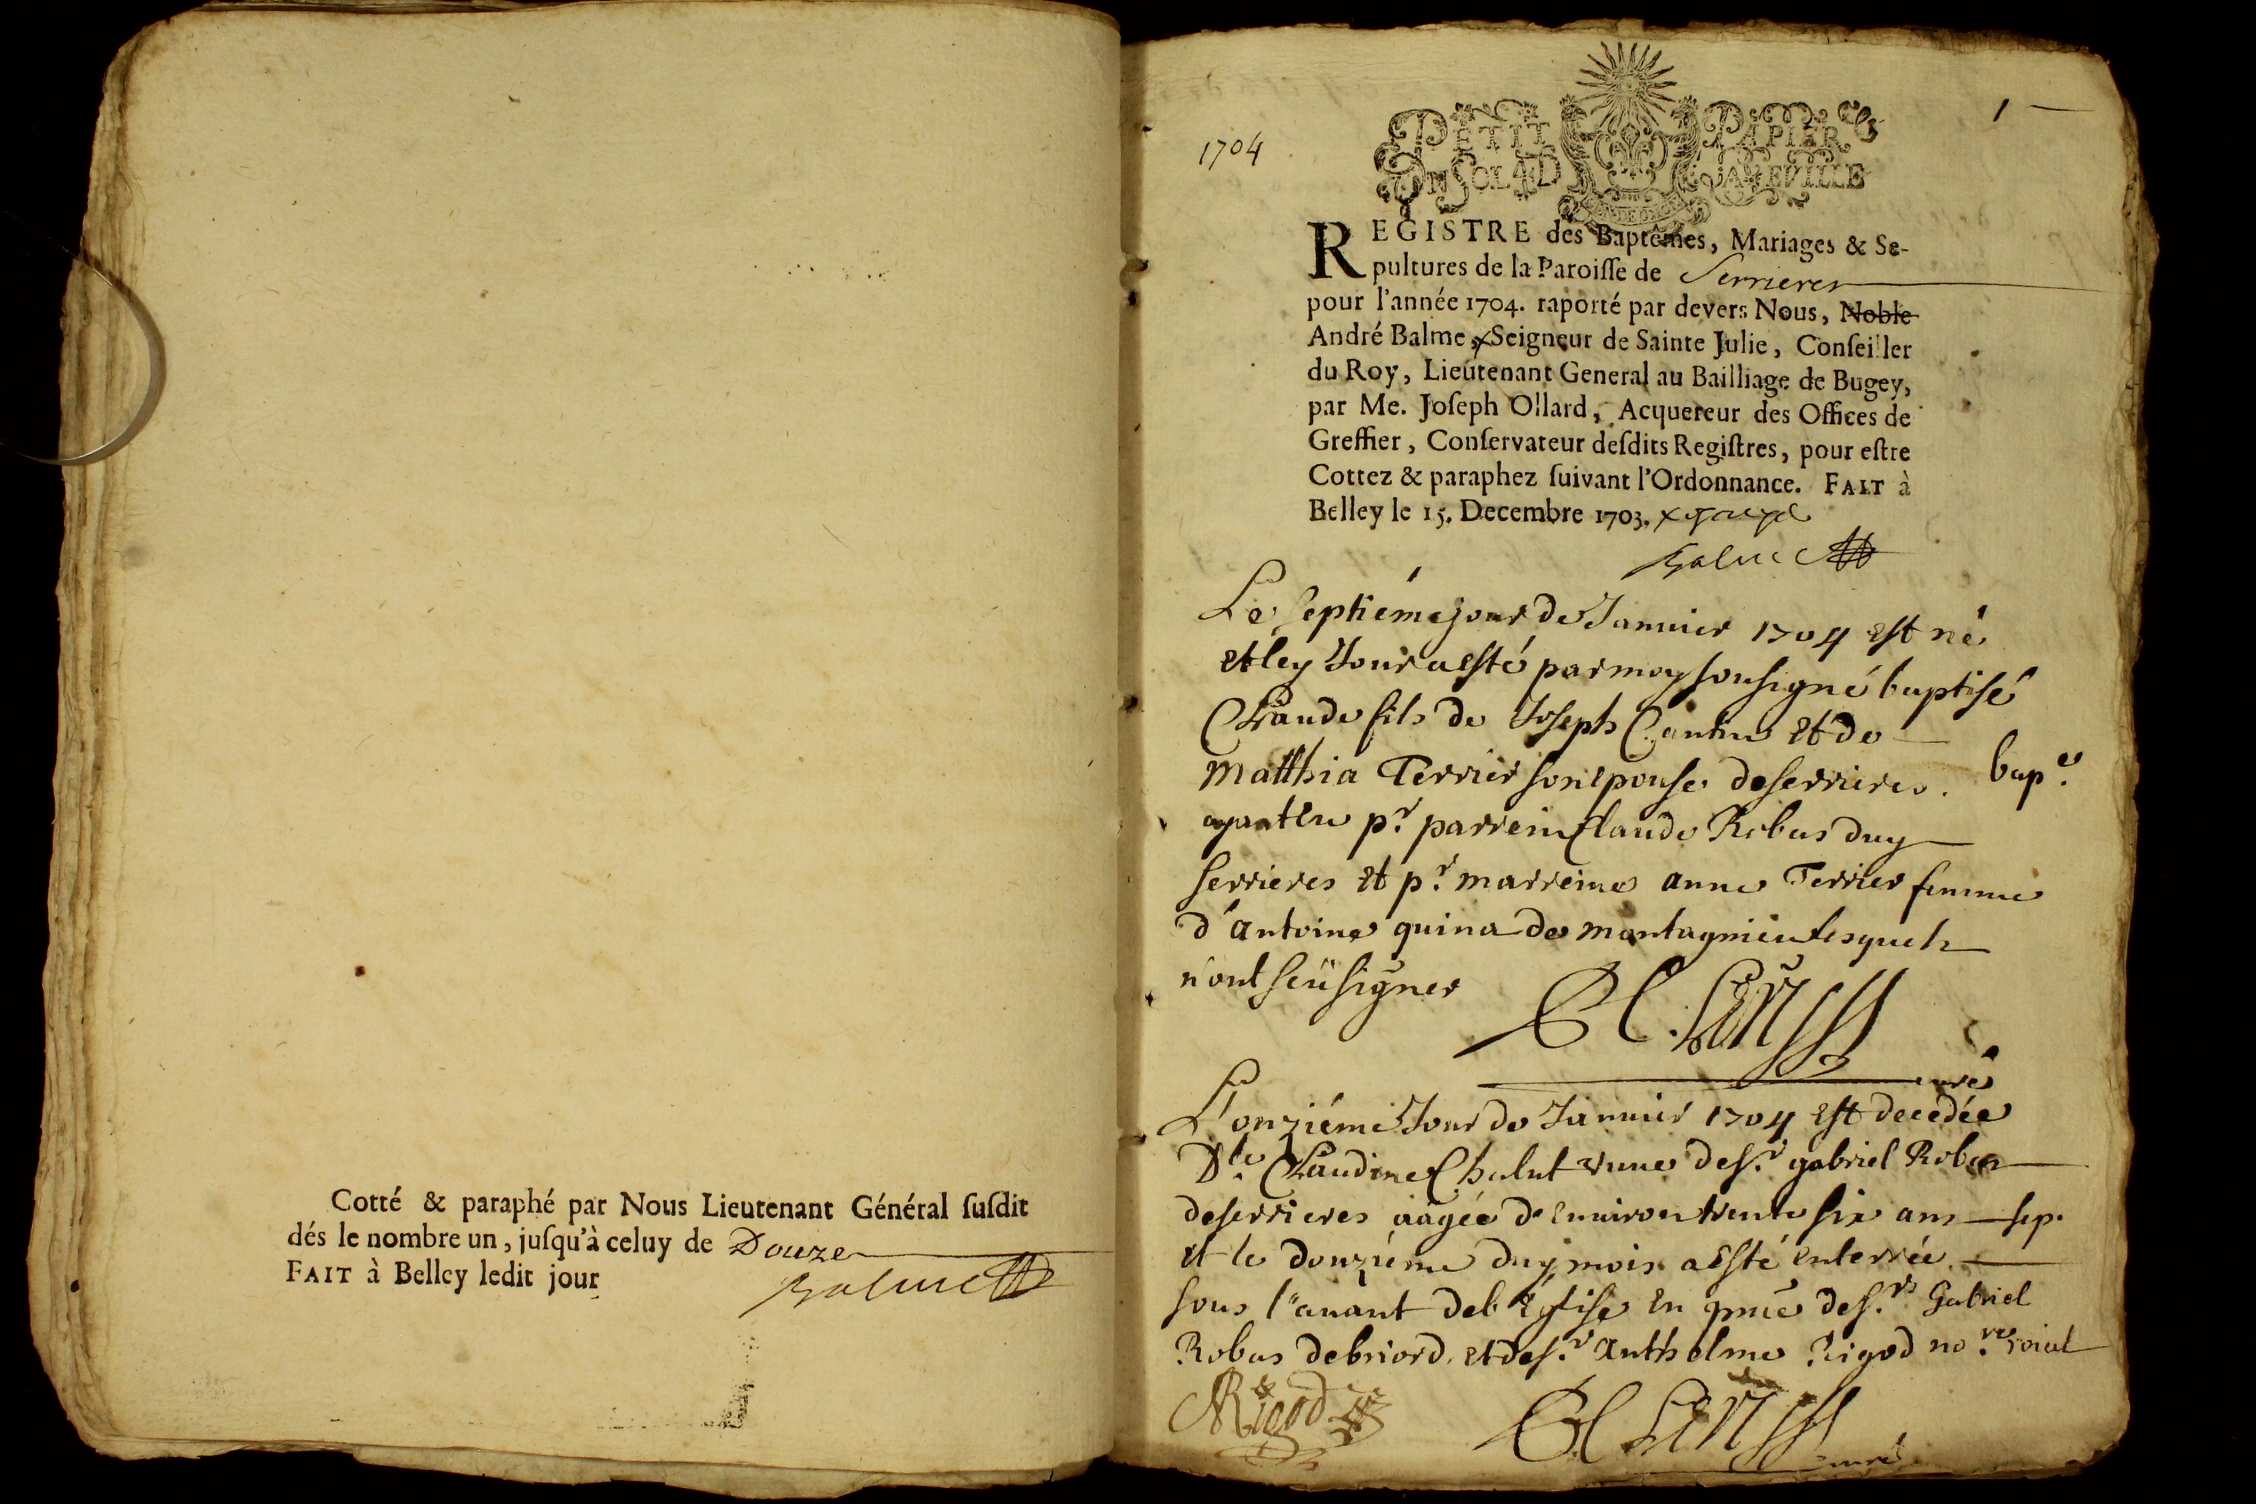 Cotté & paraphé par Nous Lieutenant Général ſuſdit
dés le nombre un, juſqu'à celuy de Douze
FAIT à Belley ledit jour
Balme
1
1704
PETIT PAPIER
UN SOL 4 D LA FEVILLE
REGISTRE des Baptêmes, Mariages & Se-
pultures de la Paroiſſe de Serrieres
pour l'année 1704. raporté par devers Nous, Noble
André Balme, x Seigneur de Sainte Julie, Conſeiller
du Roy, Lieutenant General au Bailliage de Bugey,
par Me. Joſeph Ollard, Acquereur des Offices de
Greffier, Conſervateur deſdits Regiſtres, pour eſtre
Cottez & paraphez ſuivant l'Ordonnance. FAIT à
Belley le 15. Decembre 1703. x
Balme
Le septiéme jour de Januier 1704 est né
et ley Jour a esté par moy sousigné baptisé
Claude fils de Joseph Et de
Matthia Terrier son epouse de serrieres. bap.e
ayant Eu p.r parrein Claude Robas duy
serrieres Et p.r marreine anne Terrier femme
d'antoine quina de montagnieu lesquels
n'ont seü signer
curé
L'onziéme Jour de Januier 1704 Est decédée
Dle. Claudine Chalut de s.r gabriel Robas
de serrieres aagée d'Enuiron trente six ans sep.
et le douziéme duy mois a Esté enterrée
sous l'auant de l'Eglise En pnce de s.rs Gabriel
Robas de briord. et de s.r anthelme Rigod no.re roial
Rigod
curé